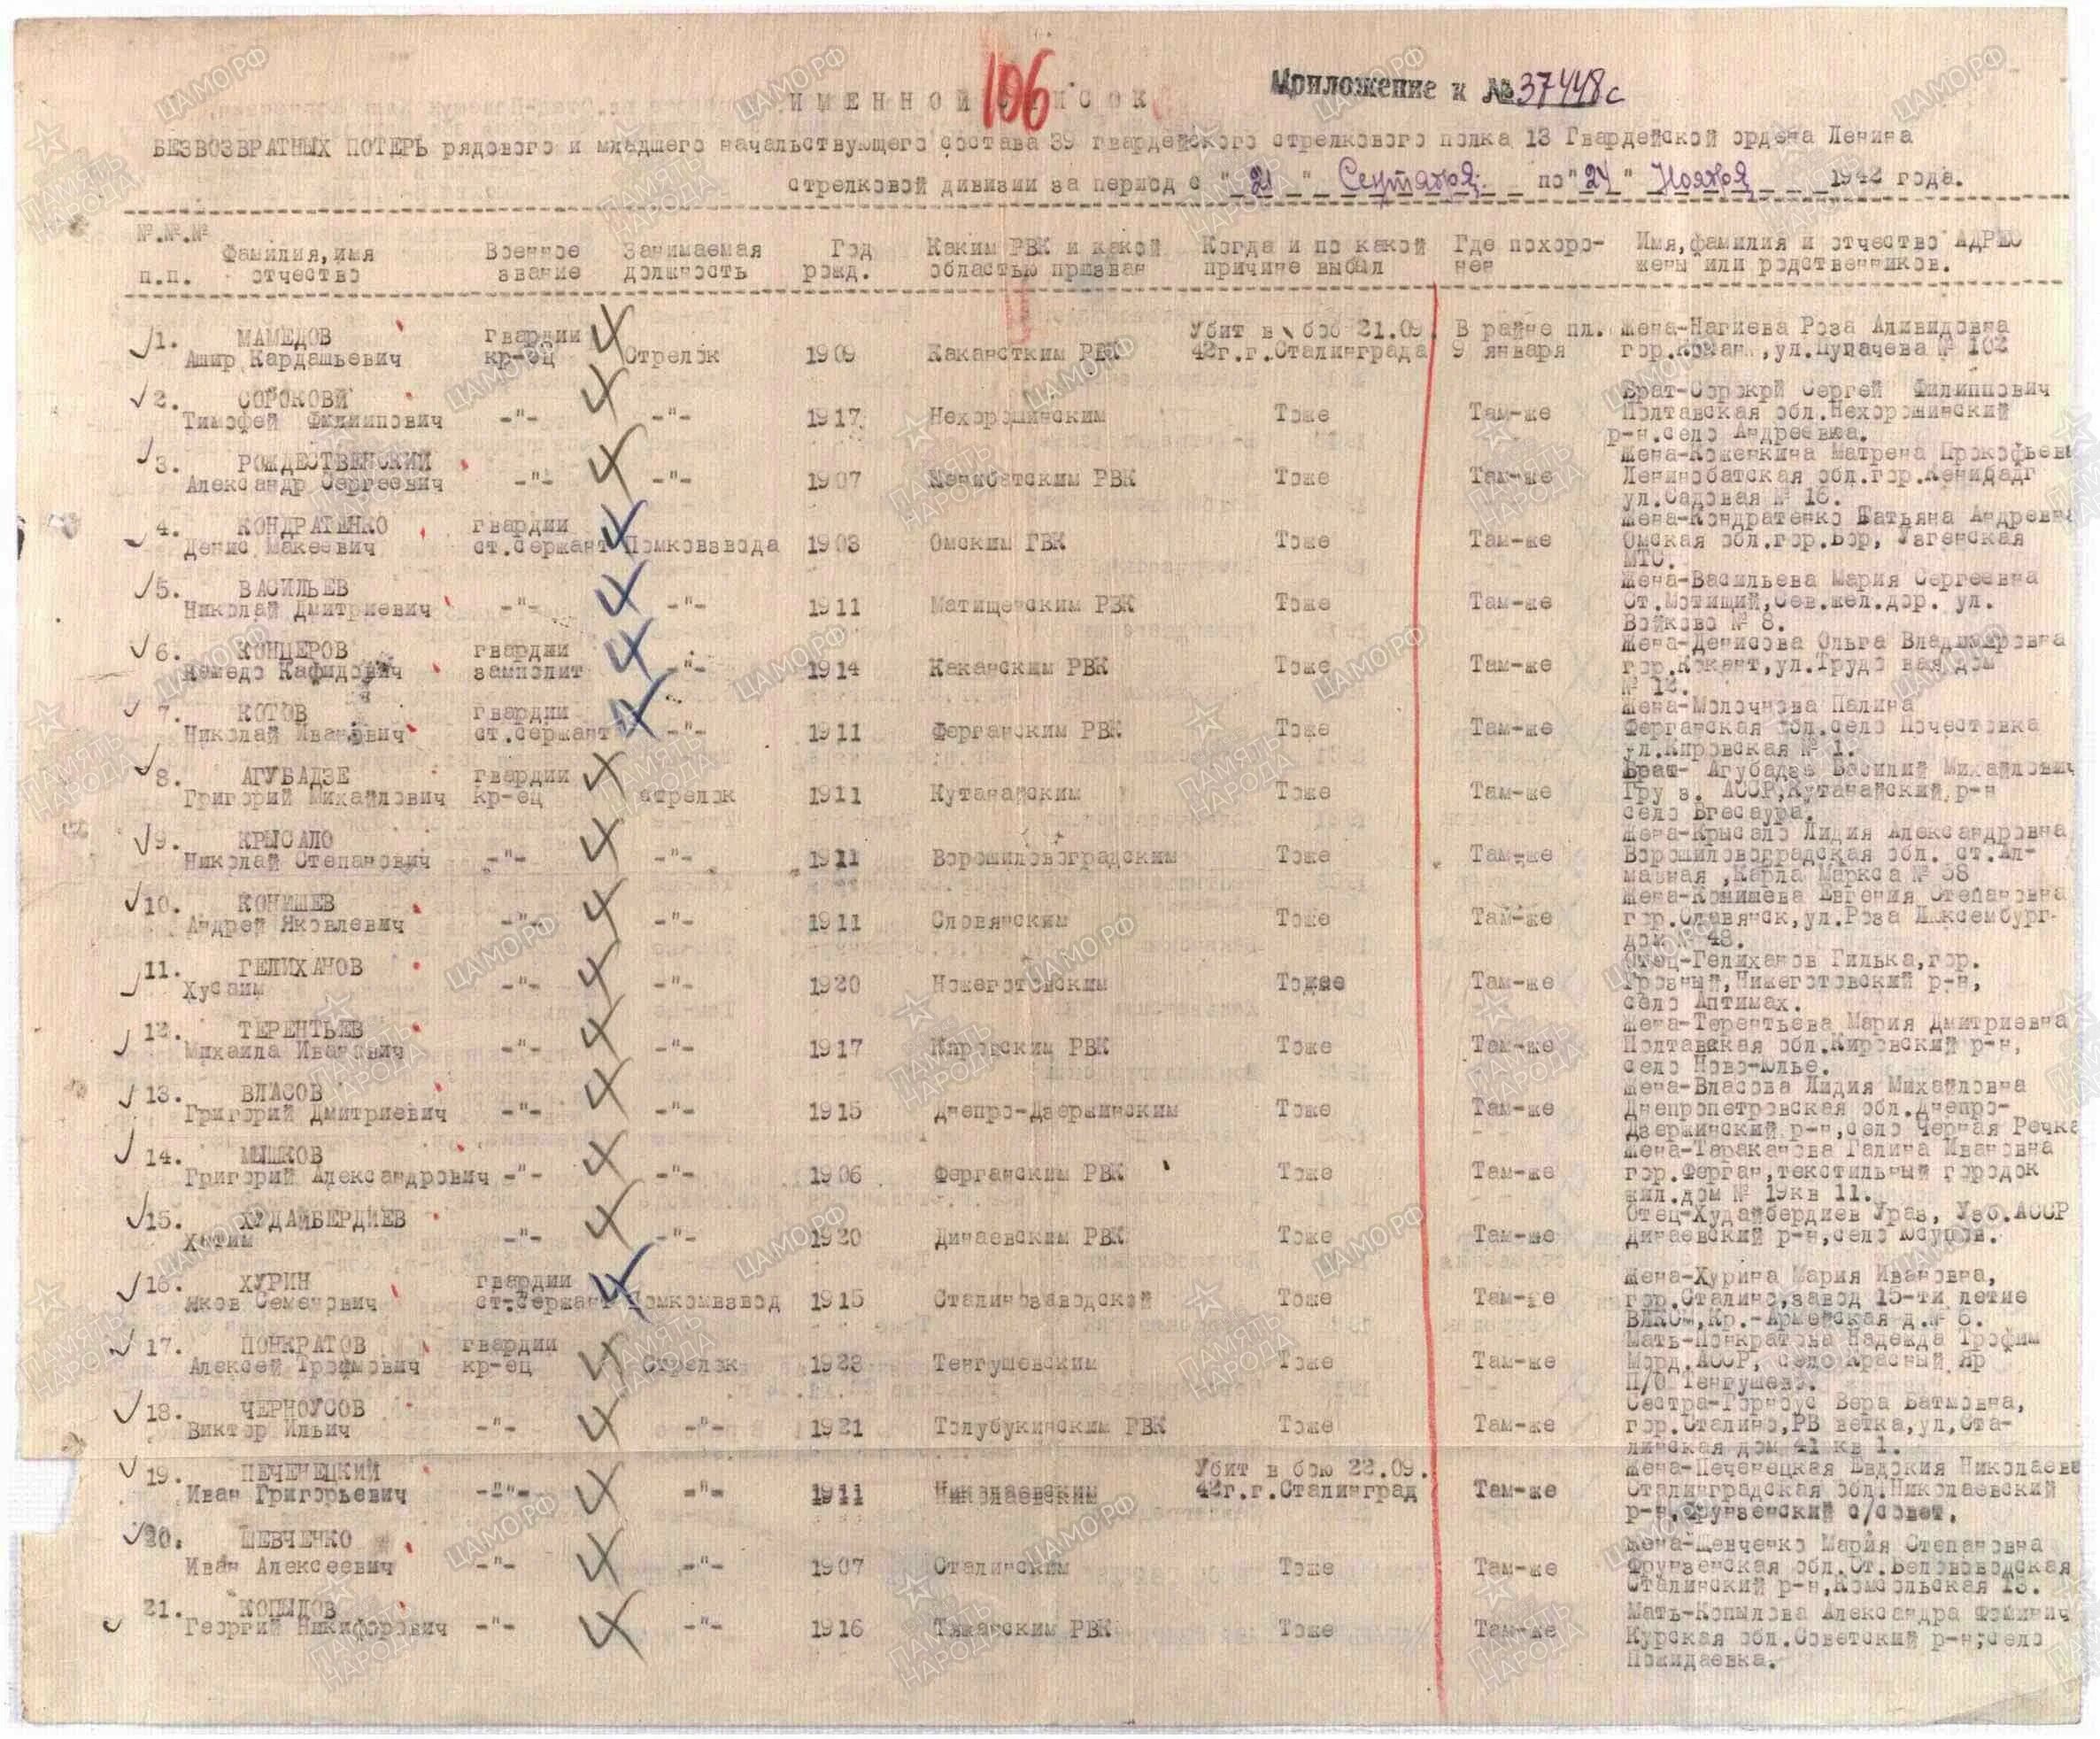 106
ИМЕННОЙ СПИСОК
Приложение к №37448с
БЕЗВОЗВРАТНЫХ ПОТЕРЬ рядового и младшего начальствующего состава 39 гвардейского стрелкового полка 13 Гвардейской ордена Ленина
стрелковой дивизии за период с "21" Сентября по "24" Ноября 1942 года.
№.№.№ п.п. Фамилия,имя отчество Военное звание Занимаемая должность Год рожд. Каким РВК и какой областью призван Когда и по какой причине выбыл Где похоро-нен Имя,фамилия и отчество АДРЕС жены или родственников.
1. МАМЕДОВ гвардии Убит в бою 21.09. В райне пл. Жена-Нагиева Роза
Ашир Кардашьевич кр-ец Стрелок 1909 РВК 42г.г.Сталинграда 9 января № 102
2. СОРОКОВИ Брат- Сергей Филиппович
Тимофей Филиппович -"- -"- 1917 Нехорошинским Тоже Там-же Полтавская обл.Нехорошинский
р-н.село
3. РОЖДЕСТВЕНСКИЙ Жена-Коженкина Матрена
Александр Сергеевич -"- -"- 1907 РВК Тоже Там-же
ул.Садовая № 16.
4. КОНДРАТЕНКО гвардии Жена-Кондратенко Татьяна
Денис Макеевич ст.сержант Помковзвода 1903 Омским Тоже Там-же Омская обл.гор.Бор,
МТС.
5. ВАСИЛЬЕВ Жена-Васильева Мария Сергеевна
Николай Дмитриевич -"- -"- 1911 Матищевским РВК Тоже Там-же Ст.Мотищий,Сев.жел.дор. ул.
Войково № 8.
6. КОНЦЕРОВ гвардии Жена-Денисова Ольга Владимировна
замполит -"- 1914 Каканским РВК Тоже Там-же гор.Кокант,ул.Трудо вая дом
№ 12.
7. КОТОВ гвардии Жена-Молочнова Палина
Николай Иванович ст.сержант -"- 1911 Ферганским РВК Тоже Там-же Ферганская обл.село Почестовка
ул.Кировская № 1.
8. АГУБАДЗЕ гвардии Брат- Агубадзе Василий Михайлович
Григорий Михайлович кр-ец стрелок 1911 Кутанайским Тоже Там-же АССР,Кутанайский р-н
село
9. КРЫСАЛО Жена-Крысало Лидия Александровна
Николай Степанович -"- -"- 1911 Ворошиловоградским Тоже Там-же Ворошиловоградская обл. ст.Ал-
мазная ,Карла Маркса № 38
10. КОНИШЕВ Жена-Конишева Евгения Степановна
Андрей Яковлевич -"- -"- 1911 Словянским Тоже Там-же гор.Славянск,ул.Роза Люксембург-
дом № 48.
11. ГЕЛИХАНОВ Отец-Гелиханов Гилька,гор.
Хусаим -"- -"- 1920 Тоже Там-же Грозный,Нижеготовский р-н,
село Аптимах.
12. ТЕРЕНТЬЕВ Жена-Терентьева Мария Дмитриевна
Михаила Иванович -"- -"- 1917 Кировским РВК Тоже Там-же Полтавская обл.Кировский р-н,
село
13. ВЛАСОВ Жена-Власова Лидия Михайловна
Григорий Дмитриевич -"- -"- 1915 Днепро-Дзержинским Тоже Там-же Днепропетровская обл.Днепро-
Дзержинский р-н,село Черная Речка
14. МЫШКОВ Жена-Тараканова Галина Ивановна
Григорий Александрович -"- -"- 1906 Ферганским РВК Тоже Там-же гор.Ферган,текстильный городок
жил.дом № 19кв 11.
15. ХУДАЙБЕРДИЕВ Отец-Худайбердиев Ураз, Узб.АССР
Хатим -"- -"- 1920 Динаевским РВК Тоже Там-же Динаевский р-н,село Юсупов.
16. ХУРИН гвардии Жена-Хурина Мария Ивановна,
Яков Семенович ст.сержант Помкомвзвод 1915 Сталинозаводской Тоже Там-же гор.Сталино,завод 15-ти летие
ВЛКСМ,Кр.-Армейская д.№ 6.
17. ПОНКРАТОВ гвардии Мать-Понкратова Надежда Трофим
Алексей Трофмович кр-ец Стрелок 1923 Тенгушевским Тоже Там-же Морд.АССР, село Красный Яр
П/О Тенгушево.
18. ЧЕРНОУСОВ Сестра- Вера Батмовна,
Виктор Ильич -"- -"- 1921 Толубукинским РВК Тоже Там-же гор.Сталино,РВ ветка,ул,Ста-
линская дом 41 кв 1.
19. ПЕЧЕНЕЦКИЙ Убит в бою 22.09. Жена-Печенецкая Евдокия Николаевн
Иван Григорьевич -"- -"- 1911 Николаевским 42г.г.Сталинград Там-же Сталинградская обл.Николаевский
р-н.Фрунзенский с/совет.
20. ШЕВЧЕНКО Жена-Шевченко Мария Степановна
Иван Алексеевич -"- -"- 1907 Сталинским Тоже Там-же Фрунзенская обл.Ст.Белововодская
Сталинский р-н,Комсольская 13.
21. КОПЫЛОВ Мать-Копылова Александра Фоминич
Георгий Никифорович -"- -"- 1916 РВК Тоже Там-же Курская обл.Советский р-н;село
Пожидаевка.
ЦАМО.РФ
ПАМЯТЬ НАРОДА